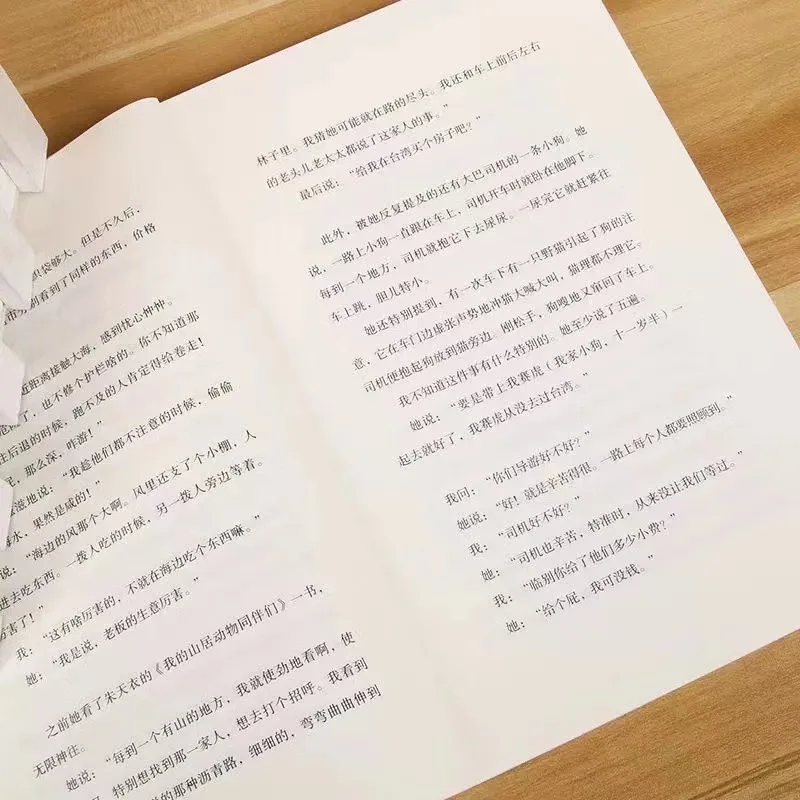 积袋够大。但是不久后，
别看到了同样的东西，价格
近距离接触大海，感到忧心忡忡。
了，也不修个护栏啥的。你不知道那
往后退的时候，跑不及的人肯定得给卷走！
那么深，咋游！”
滋地说：“我趁他们都不注意的时候，偷偷
海水，果然是咸的！”
说：“海边的风那个大啊。风里还支了个小棚，人
进去吃东西。一拨人吃的时候，另一拨人旁边等着。
厉害了！”
我：“这有啥厉害的，不就在海边吃个东西嘛。”
她：“我是说，老板的生意厉害。”
之前她看了朱天衣的《我的山居动物同伴们》一书，
无限神往。
她说：“每到一个有山的地方，我就使劲地看啊，使
，特别想找到那一家人，想去打个招呼。我看到
的那种沥青路，细细的，弯弯曲曲伸到
林子里。我猜她可能就在路的尽头。我还和车上前后左右
的老头儿老太太都说了这家人的事。”
最后说：“给我在台湾买个房子吧？”
此外，被她反复提及的还有大巴司机的一条小狗。她
说，一路上小狗一直跟在车上，司机开车时就卧在他脚下。
每到一个地方，司机就抱它下去尿尿。一尿完它就赶紧往
车上跳，胆儿特小。
她还特别提到，有一次车下有一只野猫引起了狗的注
意，它在车门边虚张声势地冲猫大喊大叫，猫理都不理它。
司机便抱起狗放到猫旁边。刚松手，狗嗖地又窜回了车上。
我不知道这件事有什么特别的。她至少说了五遍。
她说：“要是带上我赛虎（我家小狗，十一岁半）一
起去就好了，我赛虎从没去过台湾。”
我问：“你们导游好不好？”
她说：“好！就是辛苦得很。一路上每个人都要照顾到。”
我：“司机好不好？”
她：“司机也辛苦，特准时，从来没让我们等过。”
我：“临别你给了他们多少小费？”
她：“给个屁，我可没钱。”